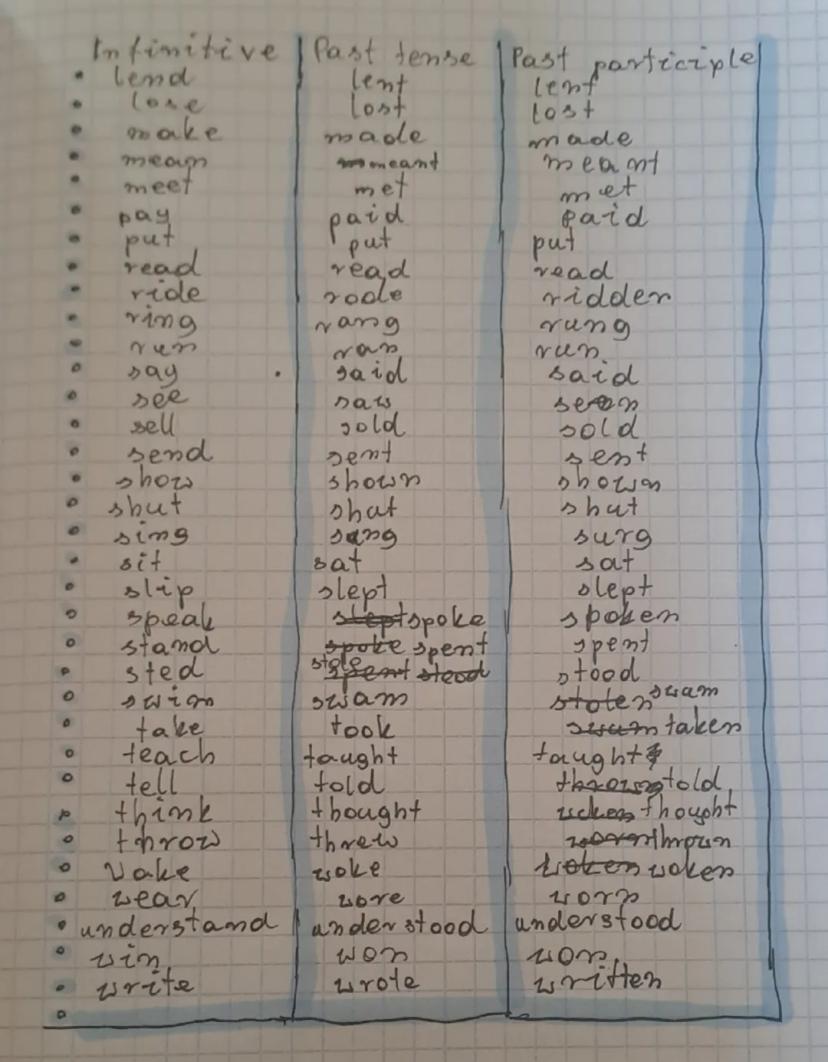 Infinitive Past tense Past participle
lend lent lent
lose lost lost
make made made
mean meant meant
meet met met
pay paid paid
put put put
read read read
ride rode ridden
ring rang rung
run ran run
say said said
see saw seen
sell sold sold
send sent sent
show shown shown
shut shut shut
sing sang surg
sit sat sat
slip slept slept
speak slept spoke spoken
stand spoke spent spent
sted stole spent stood stood
swim swam stolen swam
take took swum taken
teach taught taught
tell told thrown told
think thought thought
throw threw thrown
Wake woke woken woken
wear wore worn
understand understood understood
win won won
write wrote written